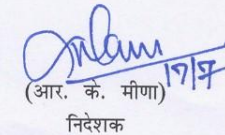 17/7
(आर. के. मीणा)
निदेशक